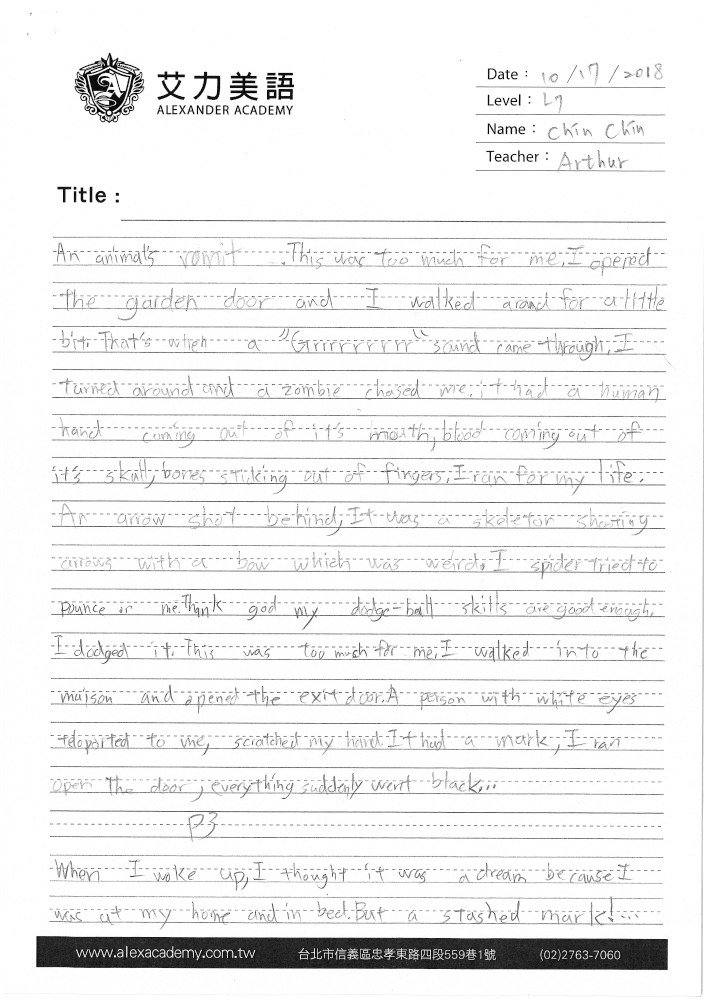 艾力美語
ALEXANDER ACADEMY
Date : 10/17/2018
Level : L7
Name : Chin Chin
Teacher : Arthur
Title :
An animal's vomit. This was too much for me. I opened
the garden door and I walked aroad for a little
bit. That's when a "Grrrrrrrrr" sound came through. I
turned around and a zombie chased me. it had a human
hand coming out of it's mouth, blood coming out of
it's skull, bones sticking out of fingers. I ran for my life.
An arrow shot behind, It was a skeletor shooting
arrows with a bow which was weird. I spider tried to
pounce on me. Thank god my dodge-ball skills are good enough.
I dodged it. This was too much for me. I walked into the
maison and opened the exit door. A person with white eyes
teloported to me, scratched my hand. It had a mark, I ran
open the door, everything suddenly went black...
P3
When I woke up, I thought it was a dream because I
was at my home and in bed. But a stashed mark!...
www.alexacademy.com.tw 台北市信義區忠孝東路四段559巷1號 (02)2763-7060